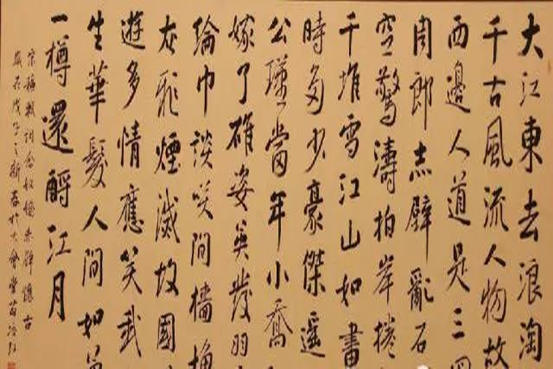 大江東去浪淘
千古風流人物故
西邊人道是三國
周郎赤壁亂石
空驚濤拍岸捲
千堆雪江山如畫
時多少豪傑遙
公瑾當年小喬
嫁了雄姿英發羽
綸巾談咲間檣
灰飛煙滅故國
遊多情應笑我
生華髮人間如
一樽還酹江月
宋蘇軾詞念奴嬌赤壁懷古
歲在戊子之新春於大會堂